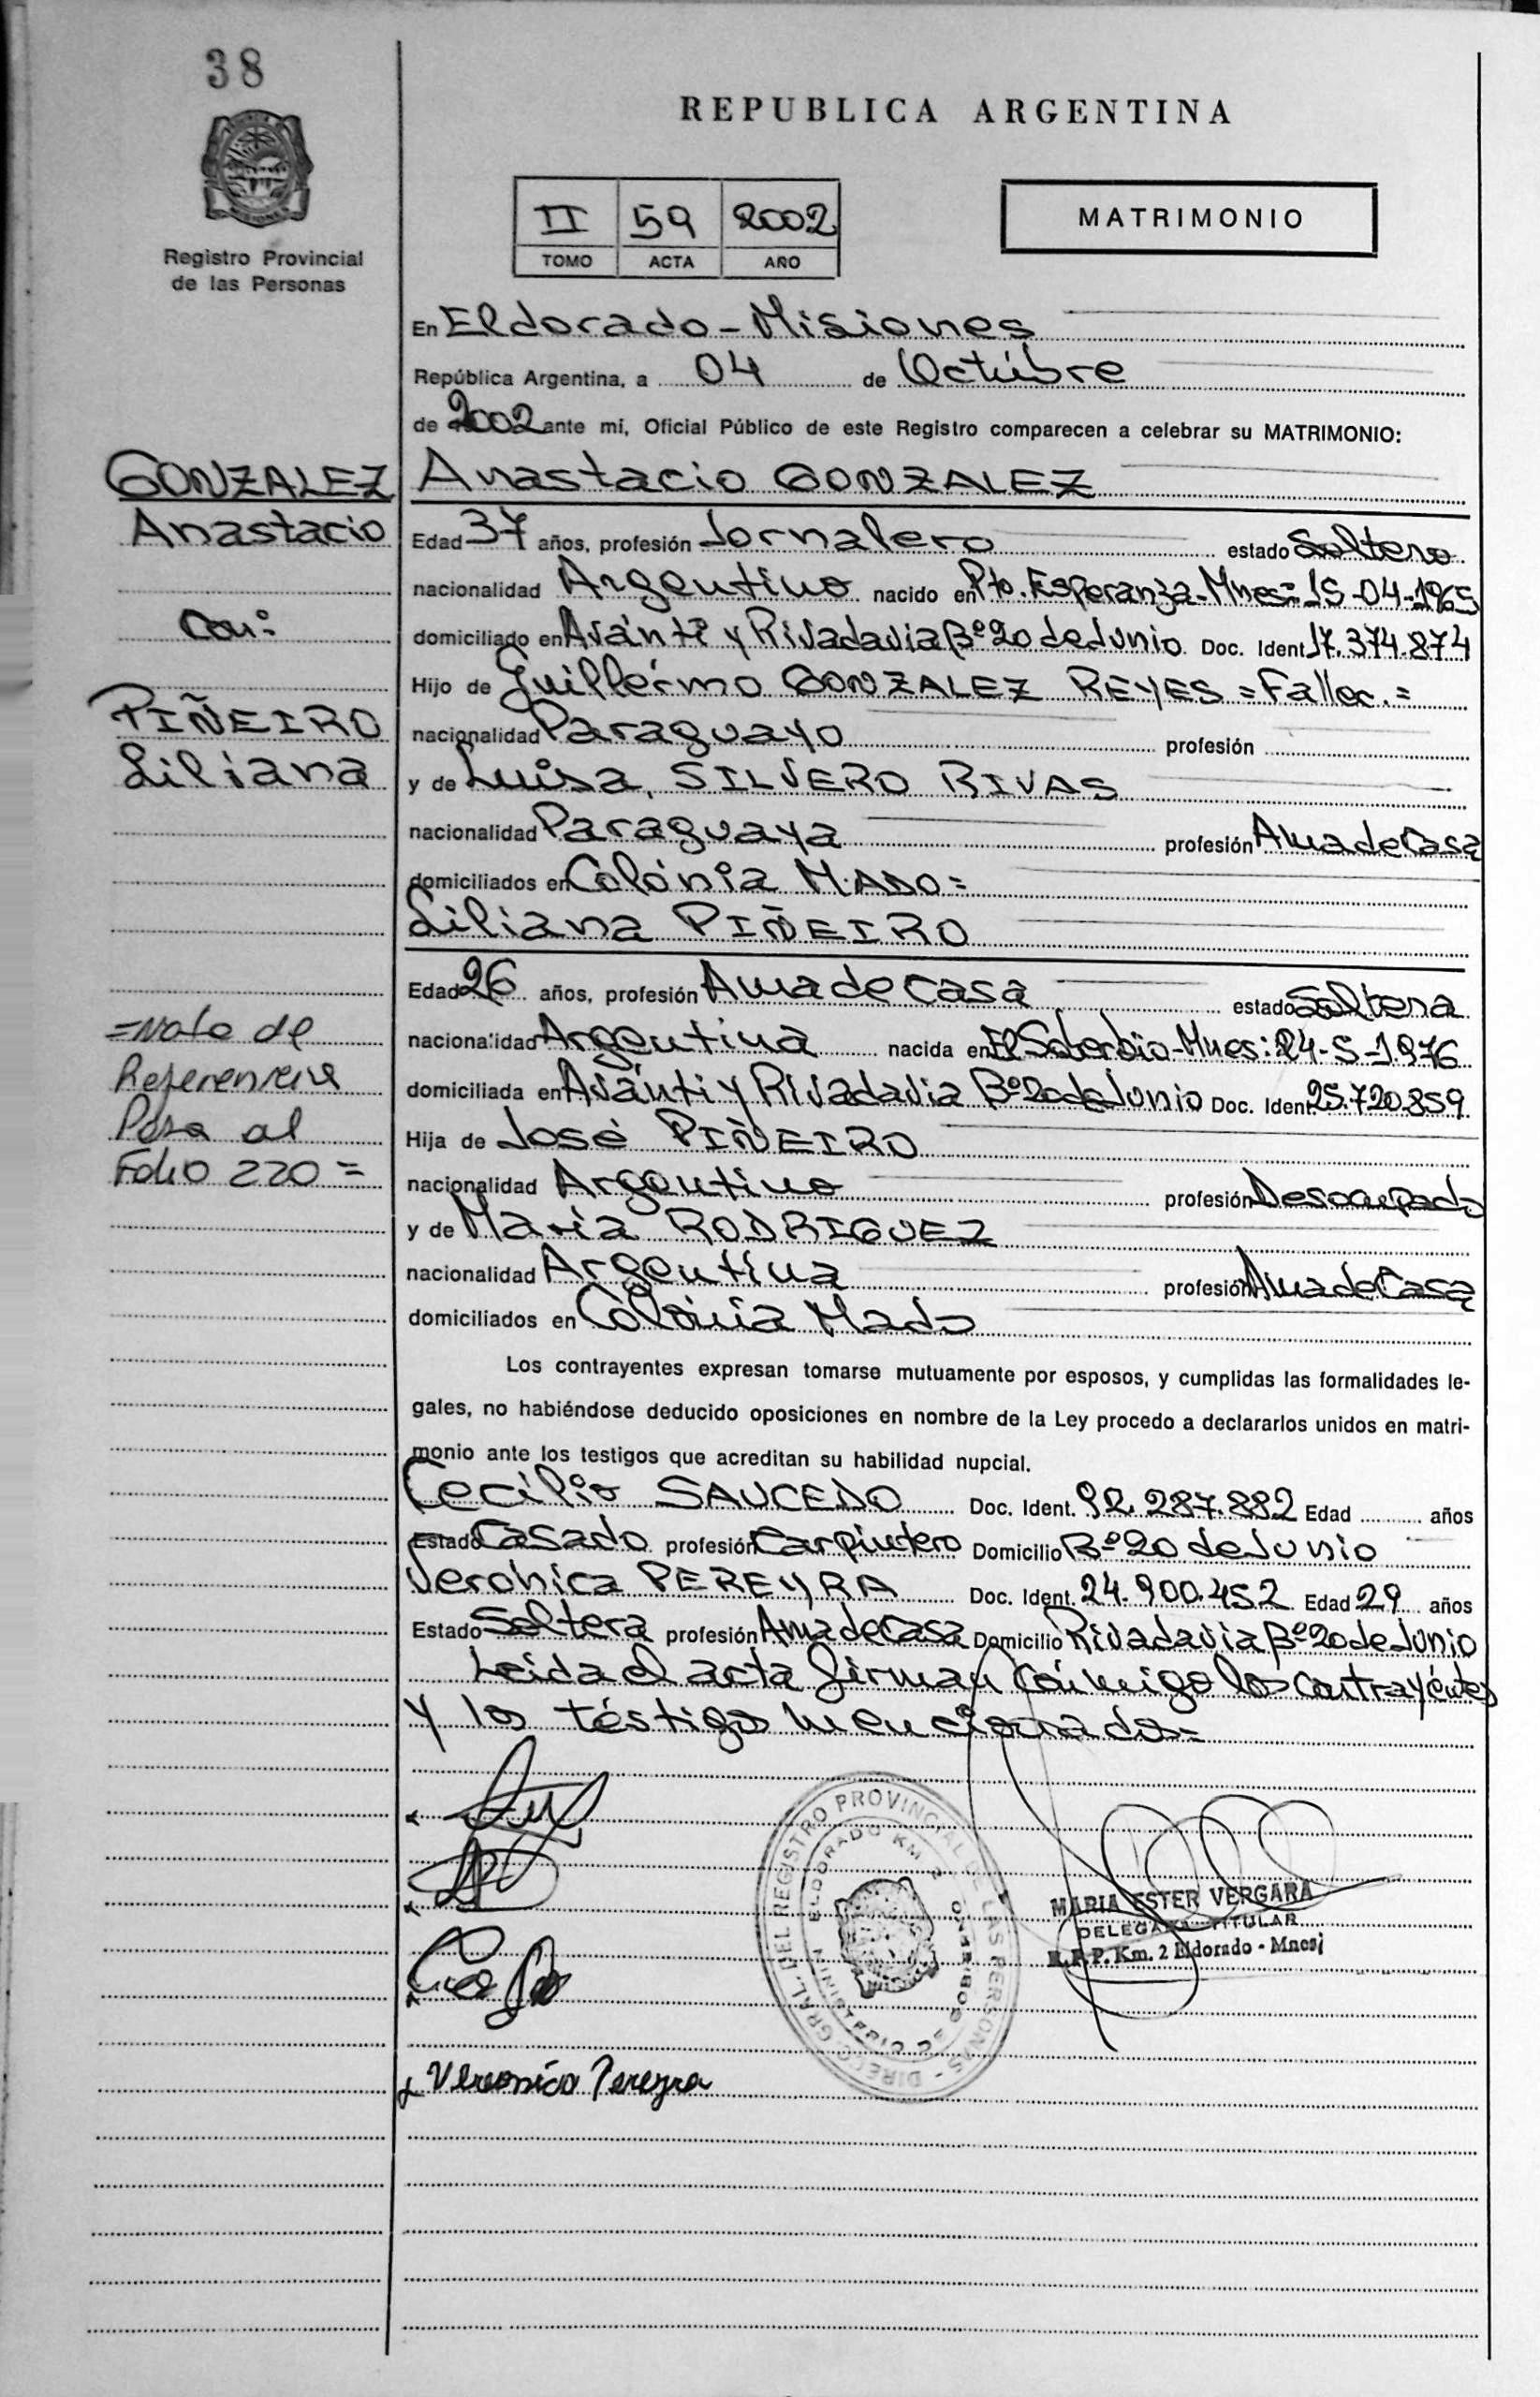 38
REPUBLICA ARGENTINA
II 59 2002
TOMO ACTA AÑO
MATRIMONIO
Registro Provincial
de las Personas
En Eldorado - Misiones
República Argentina, a 04 de Octúbre
de 2002 ante mi, Oficial Público de este Registro comparecen a celebrar su MATRIMONIO:
GONZALEZ
Anastacio
Con:
PIÑEIRO
Liliana
=Nota de
Referencia
Pasa al
Folio 220 =
Anastacio GONZALEZ
Edad 37 años, profesión Jornalero estado Soltero
nacionalidad Argentino nacido en Pto. Esperanza-Mnes= 15-04-1965
domiciliado en Avánti y Rivadavia Bº 20 de Junio Doc. Ident. 17.374.874
Hijo de Guillérmo GONZALEZ REYES =Fallec.=
nacionalidad Paraguayo profesión
y de Luisa, SILVERO RIVAS
nacionalidad Paraguaya profesión Ama de Casa
domiciliados en Colónia MADO=
Liliana PIÑEIRO
Edad 26 años, profesión Ama de casa estado Soltera
nacionalidad Argentina nacida en El Soberbio-Mnes: 24-5-1976
domiciliada en Avánti y Rivadavia Bº 20 de Junio Doc. Ident. 25.720.859
Hija de José PIÑEIRO
nacionalidad Argentino profesión Desocupado
y de María RODRIGUEZ
nacionalidad Argentina profesión Ama de Casa
domiciliados en Colónia Mado
Los contrayentes expresan tomarse mutuamente por esposos, y cumplidas las formalidades le-
gales, no habiéndose deducido oposiciones en nombre de la Ley procedo a declararlos unidos en matri-
monio ante los testigos que acreditan su habilidad nupcial.
Cecílio SAUCEDO Doc. Ident. 92.287.882 Edad años
Estado Casado profesión Carpintero Domicilio Bº 20 de Junio
Veronica PEREYRA Doc. Ident. 24.900.452 Edad 29 años
Estado Soltera profesión Ama de Casa Domicilio Rivadavia Bº 20 de Junio
Leida el acta firman conmigo los contrayéntes
y los téstigos mencionados=
DIRECC. GRAL. DEL REGISTRO PROVINCIAL DE LAS PERSONAS
ELDORADO KM 2
MINISTERIO DE GOBIERNO
MARIA ESTER VERGARA
DELEGADA TITULAR
R.P.P. Km. 2 Eldorado - Mnes
Veronica Pereyra